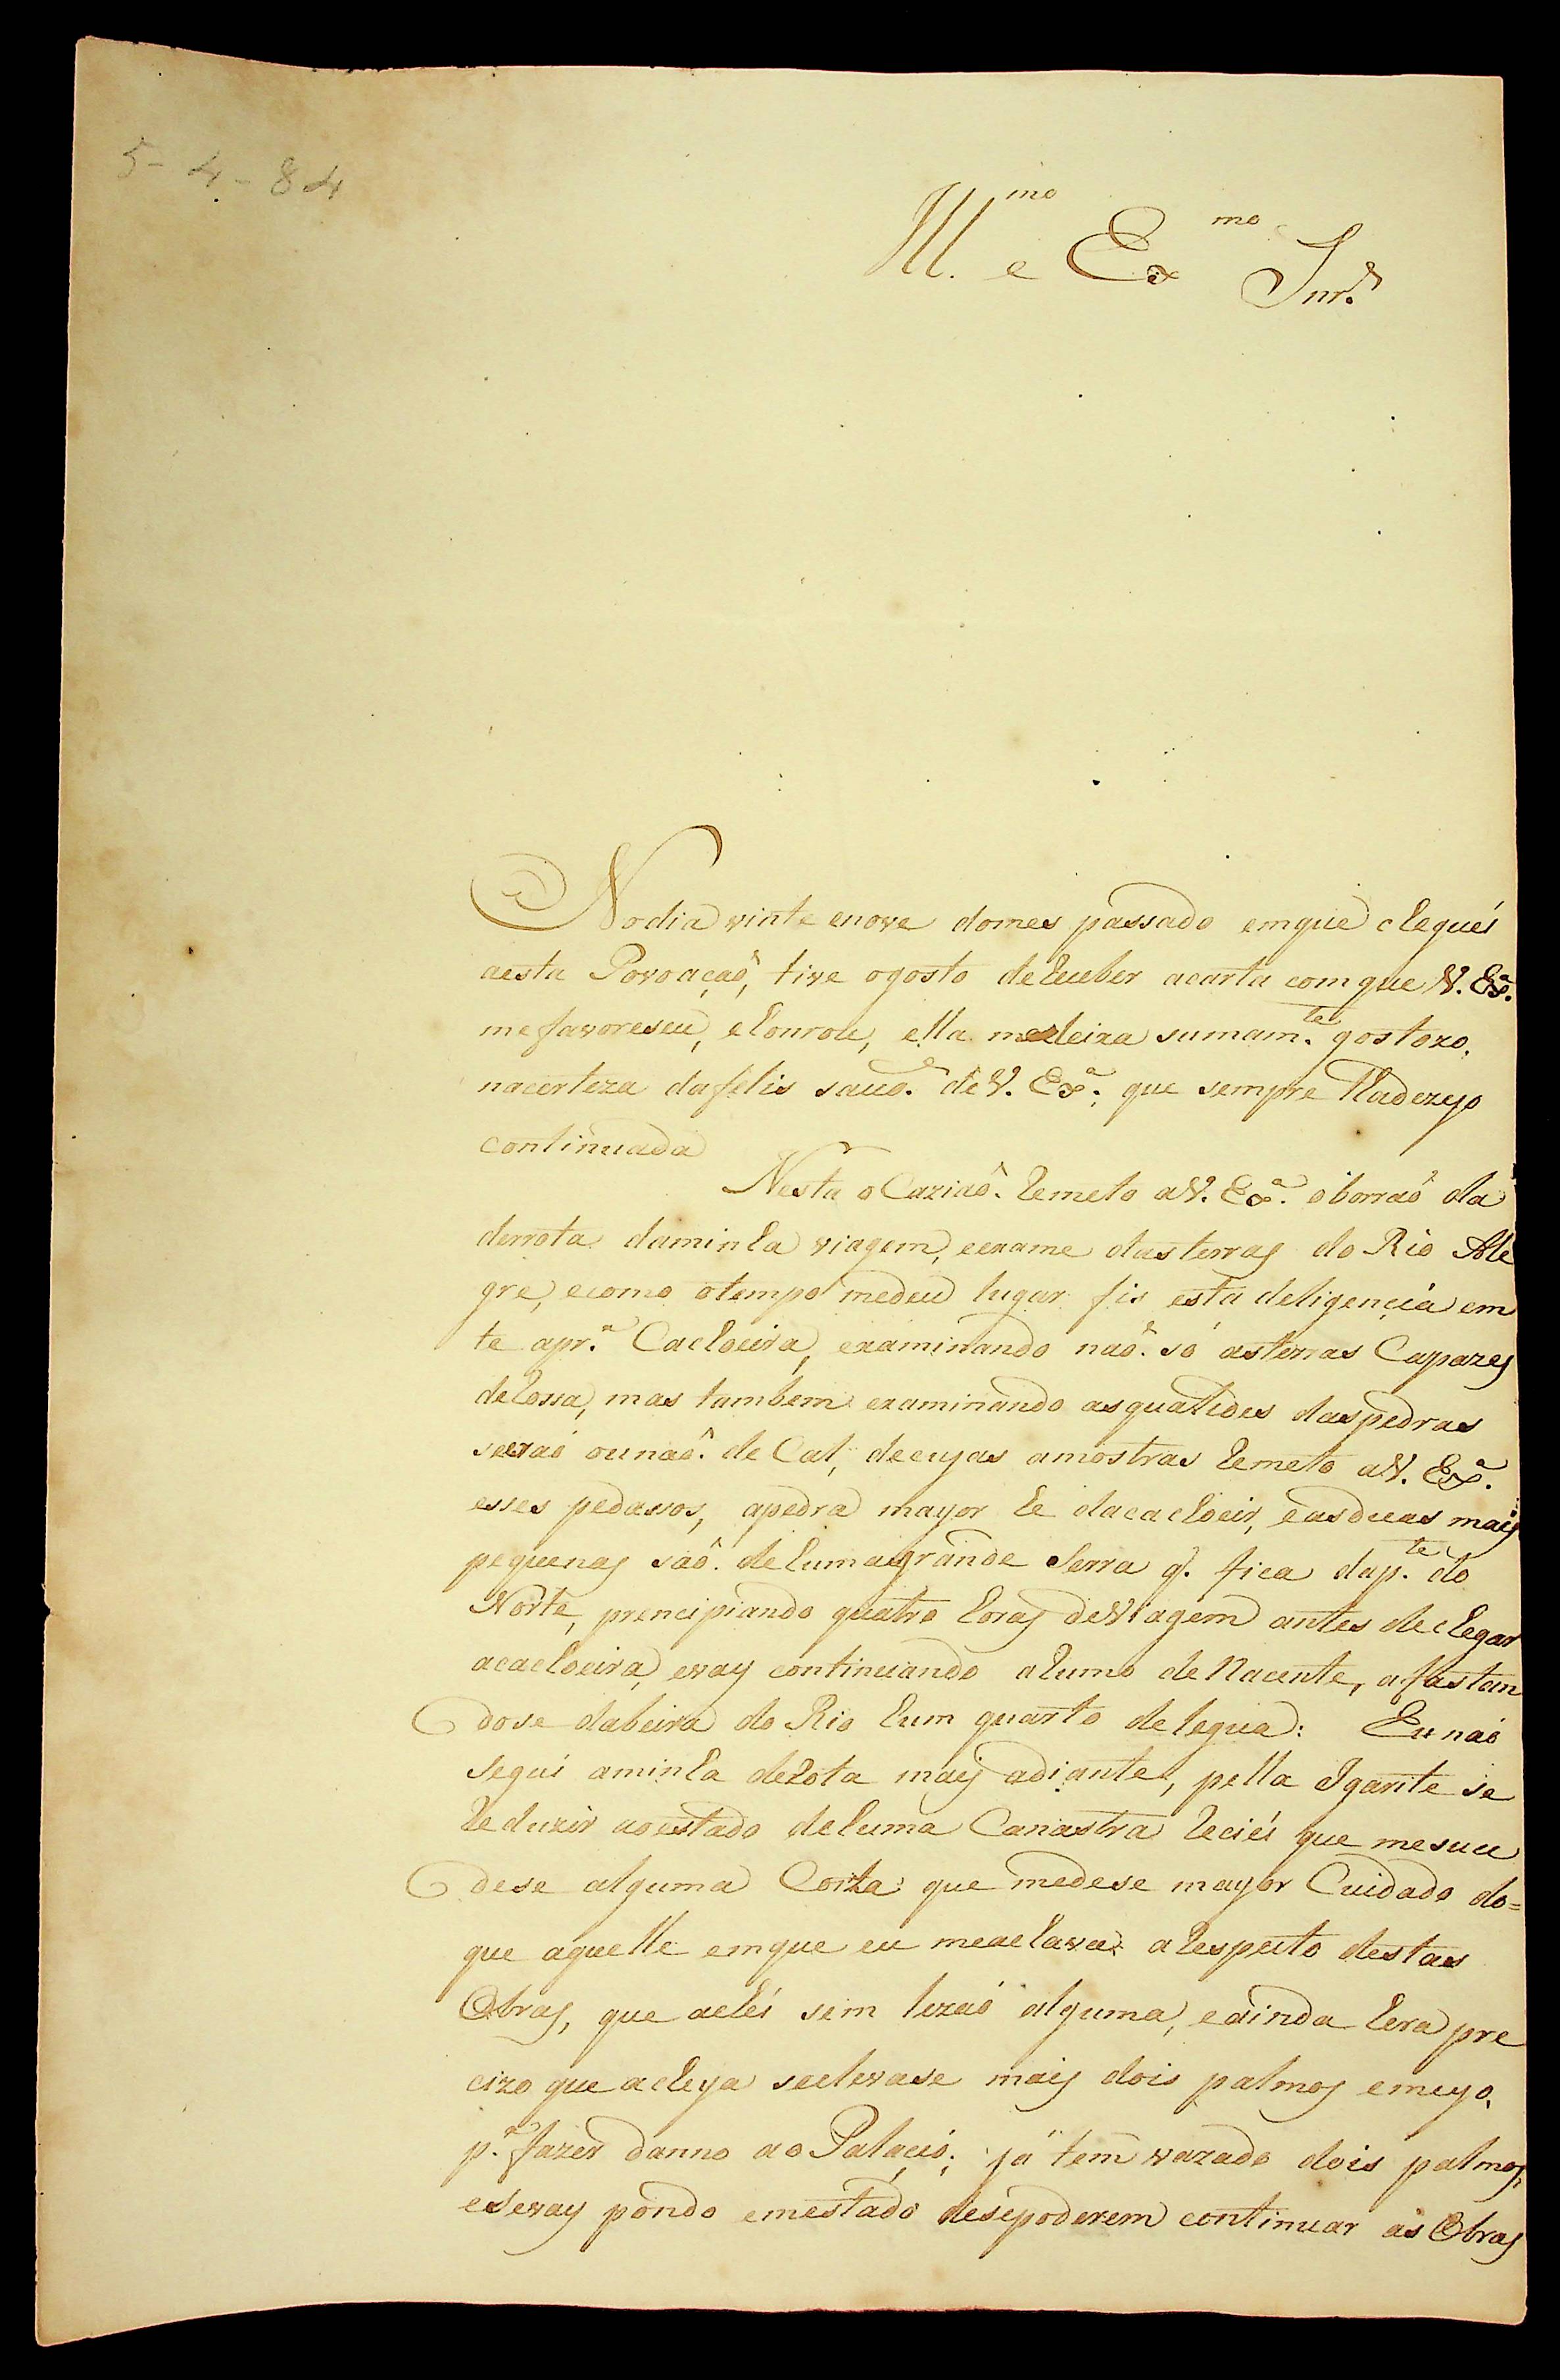 5-4-84
Ill.mo e Ex.mo Snr.
No dia vinte enove domes passado emque chegueí
aesta Povoação, tive ogosto deReceber acarta comque V. Exª.
mefavoreseu, ehonrou, ella medeixa sumam.te gostozo,
nacerteza dafelis saud.e deV. Exª. que sempre lhadezejo
continuada
Nesta oCazião. Remeto aV. Exª. oborraõ da
derrota daminha viagem, eexame dasterras do Rio Ale
gre, ecomo otempo medeu lugar fis esta deligencia em
te apr.ª Cachoeira, examinando naõ. só asterras Capazes
deRossa, mas tambem examinando asqualides daspedras
seeraó ounaõ. de Cal, decujas amostras Remeto aV. Exª.
esses pedassos, apedra mayor he dacachoeir, easduas mais
pequenas saõ. dehumagrande Serra q. fica dap.te do
Norte, prencipiando quatro horas deViagem antes dechegar
acachoeira, evay continuando aRumo deNacente, afastan
dose dabeira do Rio hum quarto delegua: Eu naó
Segui aminha deRota mais adiante, pella Igarite se
Reduzir aoestado dehuma Canastra Reciei que mesuce
dese alguma Coiza que medese mayor Cuidado do=
que aquelle emque eu meachava: aRespeito destas
Obras, que acheí sem lezaó alguma, eainda hera pre
cizo que acheya seelevase mais dois palmos emeyo,
p.ª fazer danno ao Palacio; já tem vazado dois palmos,
eSevay pondo emestado desepoderem continuar as Obras